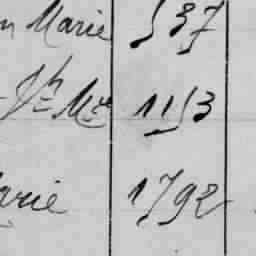 n Marie 537
Jh Mie 1153
arie 1792